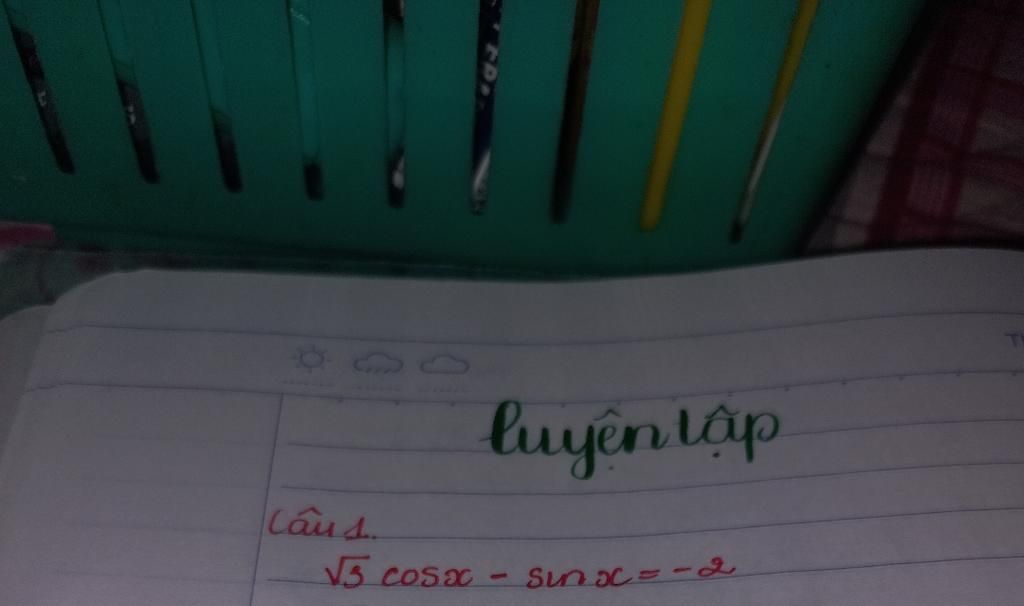 luyện tập
Câu 1.
√3 cosx - sinx = -2